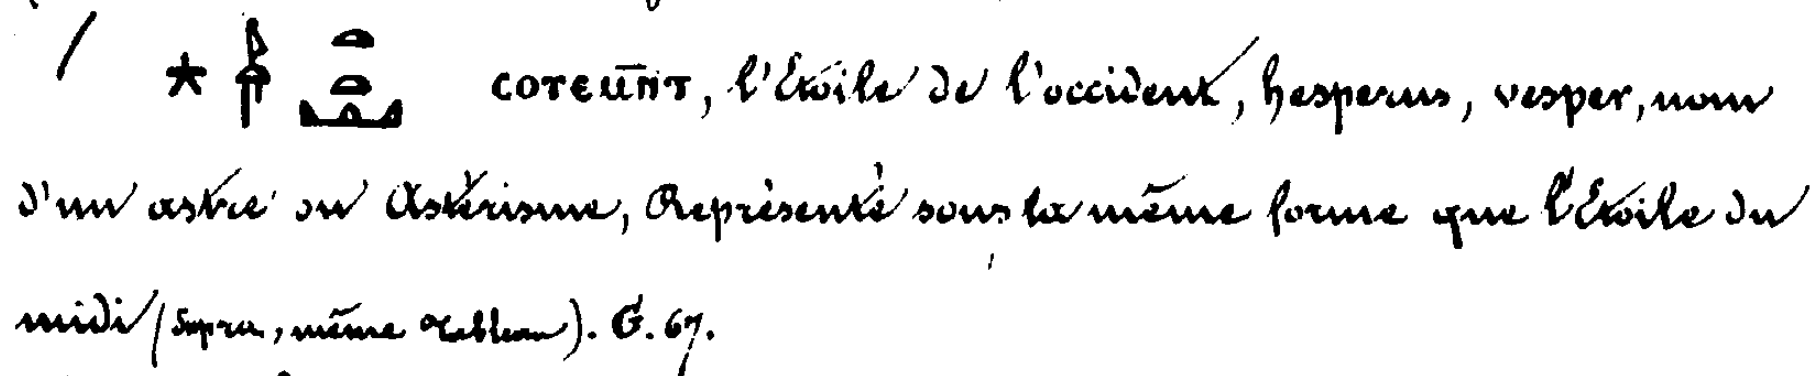 / ⲥⲟⲧⲉⲙ̅ⲛ̅ⲧ, l'Étoile de l'occident, hesperus, vesper, nom
d'un astre ou Astérisme, Représenté sous la même forme que l'Étoile du
midi (supra, même tableau). G. 67.